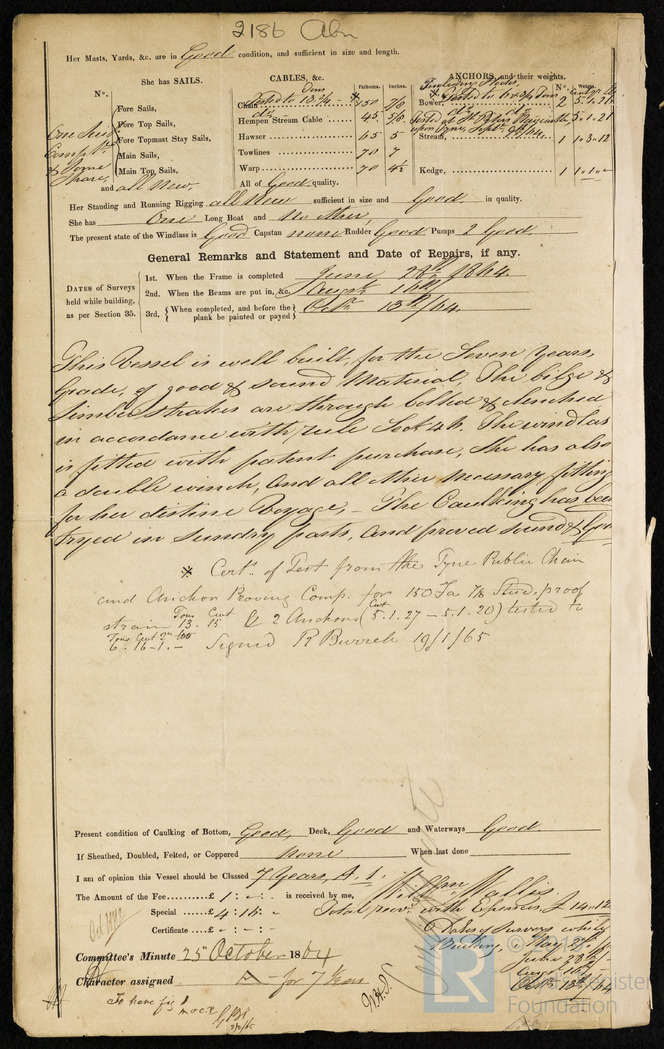 2186 Abn
Her Masts, Yards, &c. are in Good condition, and sufficient in size and length.
She has SAILS.
CABLES, &c.
ANCHORS, and their weights.
N°.
Fathoms. Inches.
N°. Weight
Fore Sails,
Fore Top Sails,
Fore Topmast Stay Sails,
Main Sails,
Main Top Sails,
One Suit
Compt.
& Some
Spare,
and all New.
Tons
Tested to 13 3/4
Chain 150 7/8
Hempen Stream Cable 45 5/8
Hawser 65 5
Towlines 70 7
Warp 70 4½
All of Good quality.
Including Stocks
Bower, 2 5.1.21
5.1.21
Stream, 1 1.3.12
Kedge, 1 1.0.
Her Standing and Running Rigging all New sufficient in size and Good in quality.
She has One Long Boat and No other,
The present state of the Windlass is Good Capstan none Rudder Good Pumps 2 Good
General Remarks and Statement and Date of Repairs, if any.
DATES of Surveys held while building, as per Section 35.
1st. When the Frame is completed June 28th 1864.
2nd. When the Beams are put in, &c. Augt. 16th
3rd. When completed, and before the plank be painted or payed Octr. 13th/64.
This Vessel is well built, for the Seven Years,
Grade, of good & sound Material, The bilge &
limber strakes are through bolted & clenched
in accordance with rule Sect 46. The windlas
is fitted with patent purchase, She has also
a double winch, and all other necessary fitting
for her distine Voyage, – The Caulking has been
tryed in Sundry parts, and proved sound & Good
* Certs. of Test from the Tyne Public Chain
and Anchor Proving Comp. for 150 Fa 7/8 Stud, proof
strain Tons 13. Cwt 15 & 2 Anchors (Cwt 5.1.27 – 5.1.20) tested to
Tons Cwt
6. 16 - 1. – Signed R Burrell 19/1/65
Present condition of Caulking of Bottom, Good, Deck, Good and Waterways Good.
If Sheathed, Doubled, Felted, or Coppered none When last done
I am of opinion this Vessel should be Classed 7 Years, A. 1.
The Amount of the Fee £ 1 : - : - is received by me, Willm Wallis
Special £ 4 : 15 : - Total recd. with Expences £ 14.12
Certificate £ - : - : -
6 Dates of Surveys whilst
Building, May 27th
June 28th
Augt 16th
Octr 13th/64
Committee's Minute 25th October 1864
Character assigned A – for 7 Years
To have fig 1
© 
LR
Foundation